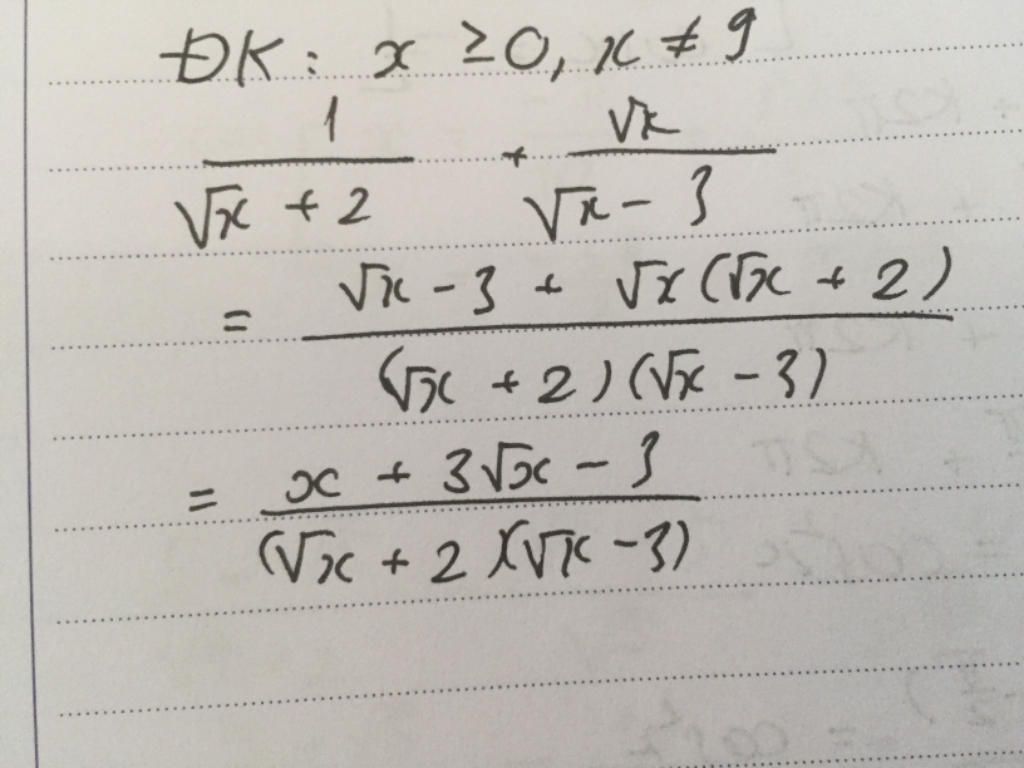 ĐK: x ≥ 0, x ≠ 9
1/(√x + 2) + √x/(√x - 3)
= (√x - 3 + √x(√x + 2))/((√x + 2)(√x - 3))
= (x + 3√x - 3)/((√x + 2)(√x - 3))